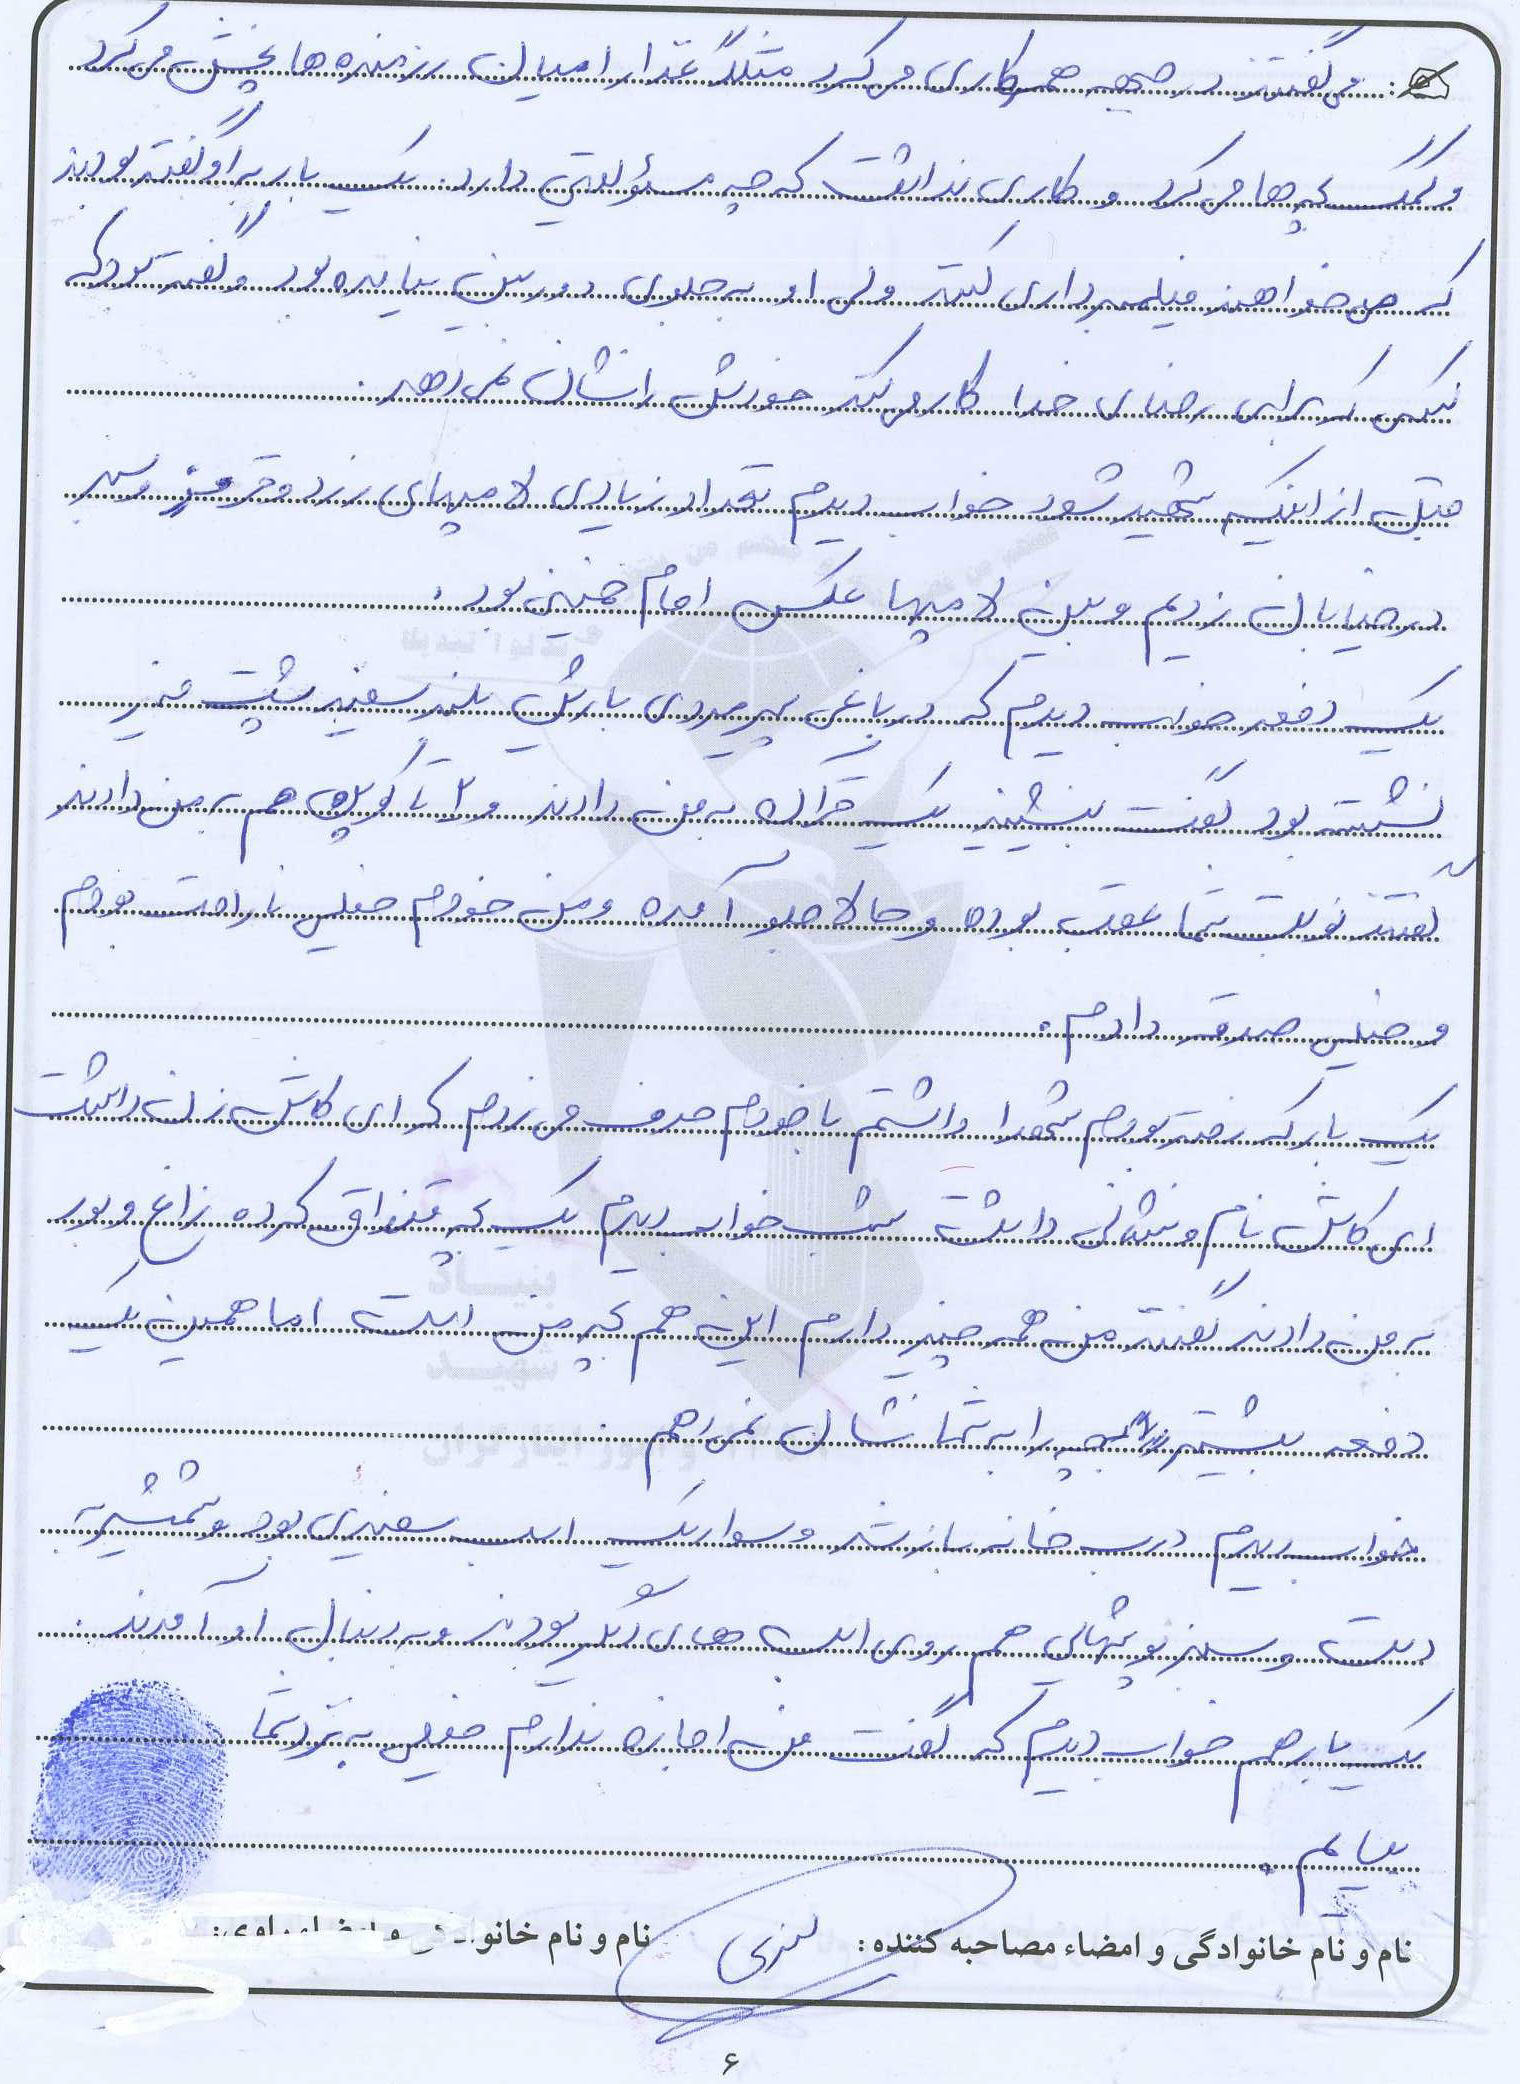 می گفتند در جبهه همه کاری می کرد مثلاً غذا را میان رزمنده ها پخش می کرد
و کمک بچه ها می کرد و کاری نداشت که چه مسئولیتی دارد. یک بار به او گفته بودند
که می خواهند فیلمبرداری کنند ولی او به جلوی دوربین نیامده بود و گفته بود که
کسی که برای رضای خدا کار می کند خودش را نشان نمی دهد.
قبل از اینکه شهید شود خواب دیدم تعداد زیادی لامپهای زرد و قرمز و سبز
در خیابان زدیم و بین لامپها عکس امام خمینی بود.
یک دفعه خواب دیدم که در باغی پیرمردی با ریش بلند سفید پشت میز
نشسته بود گفت بنشینید یک قرآن به من دادند و ۲ تا کوپن هم به من دادند
گفتند نوبت شما عقب بوده و حالا جلو آمده و من خودم خیلی ناراحت بودم
و خیلی صدقه دادم.
یک بار که رفته بودم شهدا داشتم با خودم حرف می زدم که ای کاش زن داشت
ای کاش نام و نشانی داشت شب خواب دیدم یک بچه قنداق کرده زاغ و بور
به من دادند گفتند من همه چیز دارم این هم بچه من است اما همین یک
دفعه بیشتر بچه را به شما نشان نمی دهم.
خواب دیدم درب خانه باز شد و سوار یک اسب سفیدی بود و شمشیر به
دست و سبز پوشهایی هم روی اسب های دیگر بودند و به دنبال او آمدند.
یک بار هم خواب دیدم که گفت من اجازه ندارم خیلی به نزد شما
بیایم.
نام و نام خانوادگی و امضاء مصاحبه کننده: نام و نام
۶
بنیاد
شهید